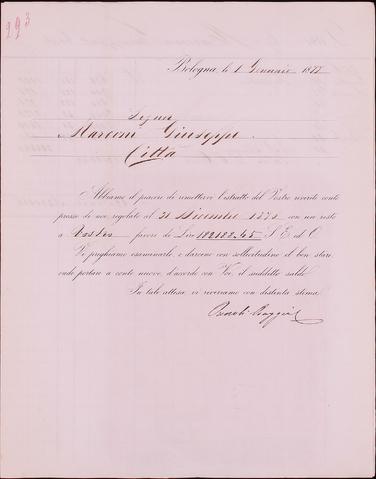 293
Bologna, li 1 Gennaio 187
Signor
Marconi Giuseppe
Città
Abbiamo il piacere di rimettervi l'estratto del Vostro riverito conto
presso di noi regolato al 31 Dicembre 187 con un resto
a Vostro favore di Lire 182133.45 S. E. ed O.
Vi preghiamo esaminarlo, e darcene con sollecitudine il ben stare,
onde portare a conto nuovo, d'accordo con Voi, il suddetto saldo.
In tale attesa, vi riveriamo con distinta stima